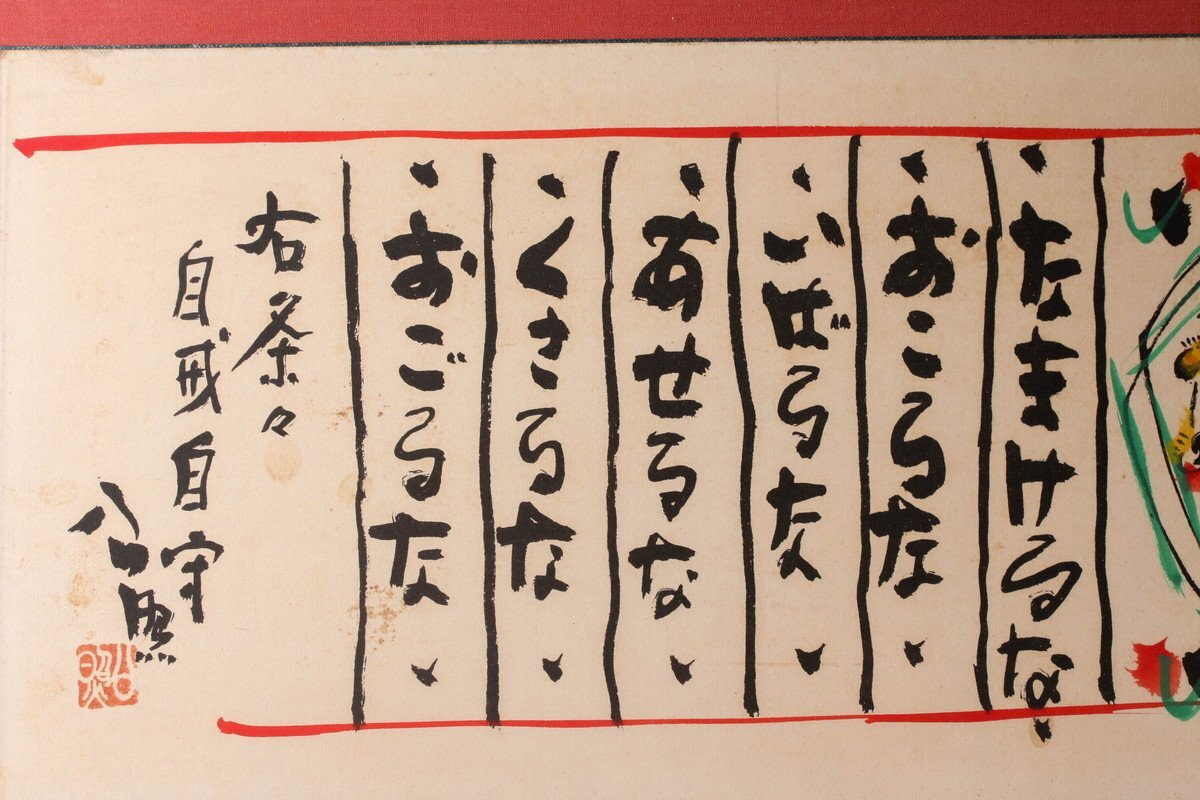 なまけるな
おこるな
いばるな
あせるな
くさるな
おごるな
右条々
自戒自守
公照